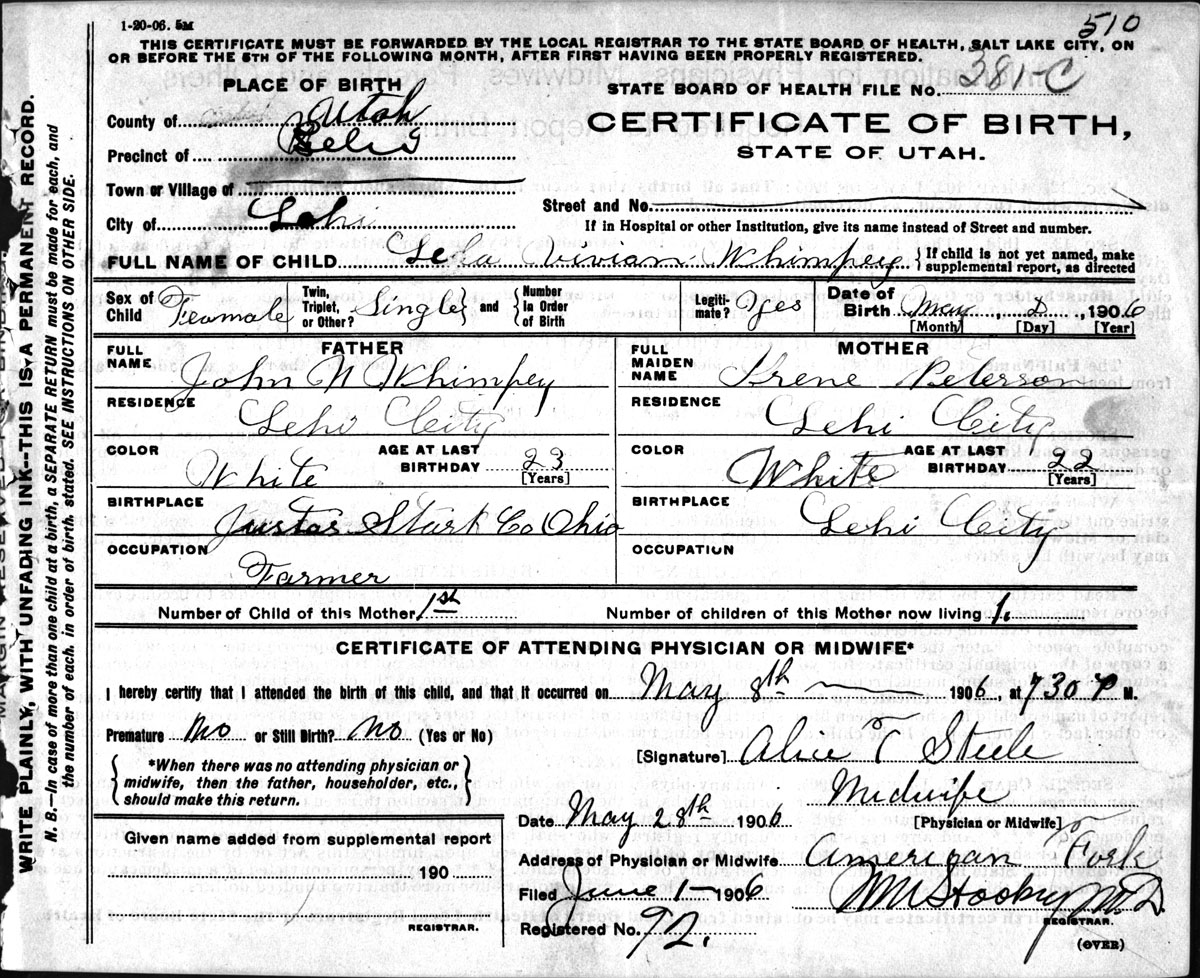 1-20-06. 5M
510
THIS CERTIFICATE MUST BE FORWARDED BY THE LOCAL REGISTRAR TO THE STATE BOARD OF HEALTH, SALT LAKE CITY, ON
OR BEFORE THE 5TH OF THE FOLLOWING MONTH, AFTER FIRST HAVING BEEN PROPERLY REGISTERED.
PLACE OF BIRTH
STATE BOARD OF HEALTH FILE No. 381-C
County of Utah
CERTIFICATE OF BIRTH,
Precinct of
STATE OF UTAH.
Town or Village of
City of Lehi
Street and No.
If in Hospital or other Institution, give its name instead of Street and number.
FULL NAME OF CHILD Lela Vivian Whimpey { If child is not yet named, make supplemental report, as directed
Sex of Child Feamale
Twin, Triplet, or Other? Single } and { Number in Order of Birth
Legitimate? Yes
Date of Birth May, 8, 1906
[Month] [Day] [Year]
FATHER
FULL NAME John N Whimpey
RESIDENCE
Lehi City
COLOR White
AGE AT LAST BIRTHDAY 23
[Years]
BIRTHPLACE
Justas Stark Co Ohio
OCCUPATION
Farmer
MOTHER
FULL MAIDEN NAME Irene Peterson
RESIDENCE
Lehi City
COLOR White
AGE AT LAST BIRTHDAY 22
[Years]
BIRTHPLACE
Lehi City
OCCUPATION
Number of Child of this Mother 1st
Number of children of this Mother now living 1.
CERTIFICATE OF ATTENDING PHYSICIAN OR MIDWIFE*
I hereby certify that I attended the birth of this child, and that it occurred on May 8th 1906, at 730 P M.
Premature No or Still Birth? No (Yes or No)
[Signature] Alice T Steele
{ *When there was no attending physician or
midwife, then the father, householder, etc.,
should make this return. }
Midwife
Date May 28th 1906 [Physician or Midwife]
Given name added from supplemental report
190
REGISTRAR.
Address of Physician or Midwife American Fork
Filed June 1- 1906
REGISTRAR.
Registered No. 92.
(OVER)
WRITE PLAINLY, WITH UNFADING INK--THIS IS A PERMANENT RECORD.
N. B.--In case of more than one child at a birth, a SEPARATE RETURN must be made for each, and
the number of each, in order of birth, stated. SEE INSTRUCTIONS ON OTHER SIDE.